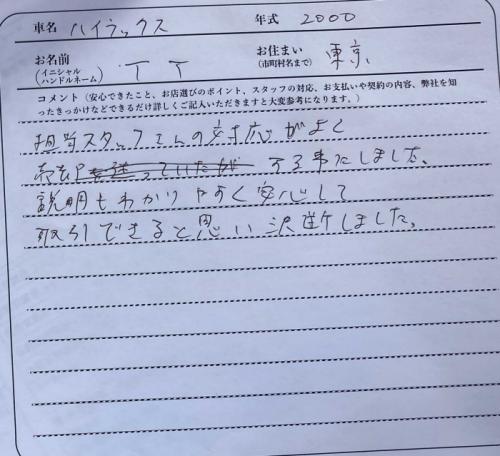 車名 ハイラックス 年式 2000
お名前 (イニシャル ハンドルネーム) T T お住まい (市町村名まで) 東京
コメント（安心できたこと、お店選びのポイント、スタッフの対応、お支払いや契約の内容、弊社を知
ったきっかけなどできるだけ詳しくご記入いただきますと大変参考になります。）
担当スタッフさんの対応がよく
売却 する事にしました。
説明もわかりやすく安心して
取引できると思い決断しました。